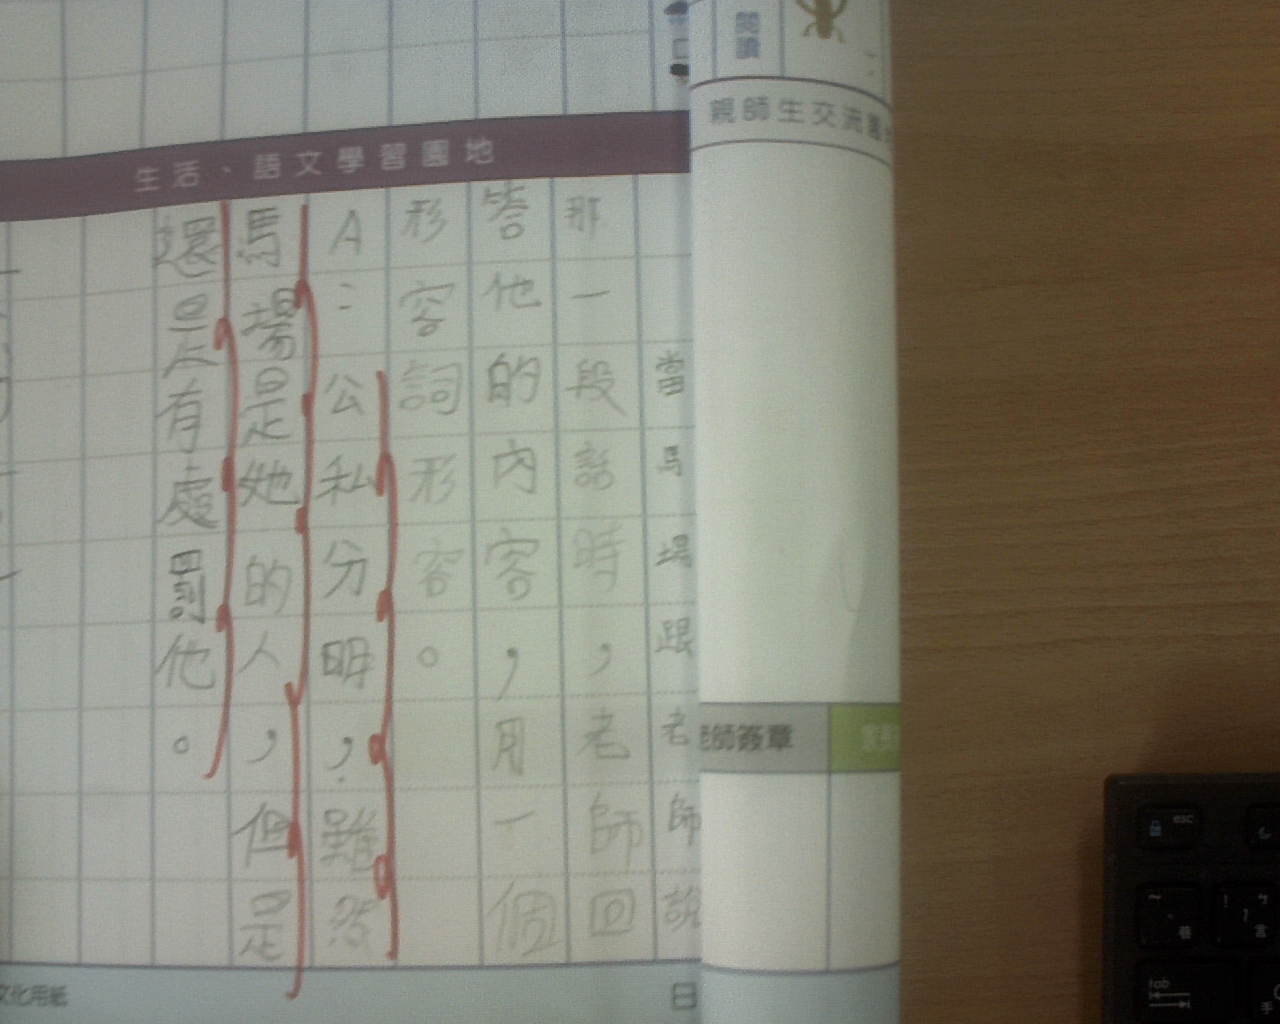 閱讀
親師生交流園地
生活、語文學習園地
當馬場跟老師說
那一段話時，老師回
答他的內容，用一個
形容詞形容。
A：公私分明，雖然
馬場是她的人，但是
還是有處罰他。
老師簽章
家長
文化用紙
日
esc
tab